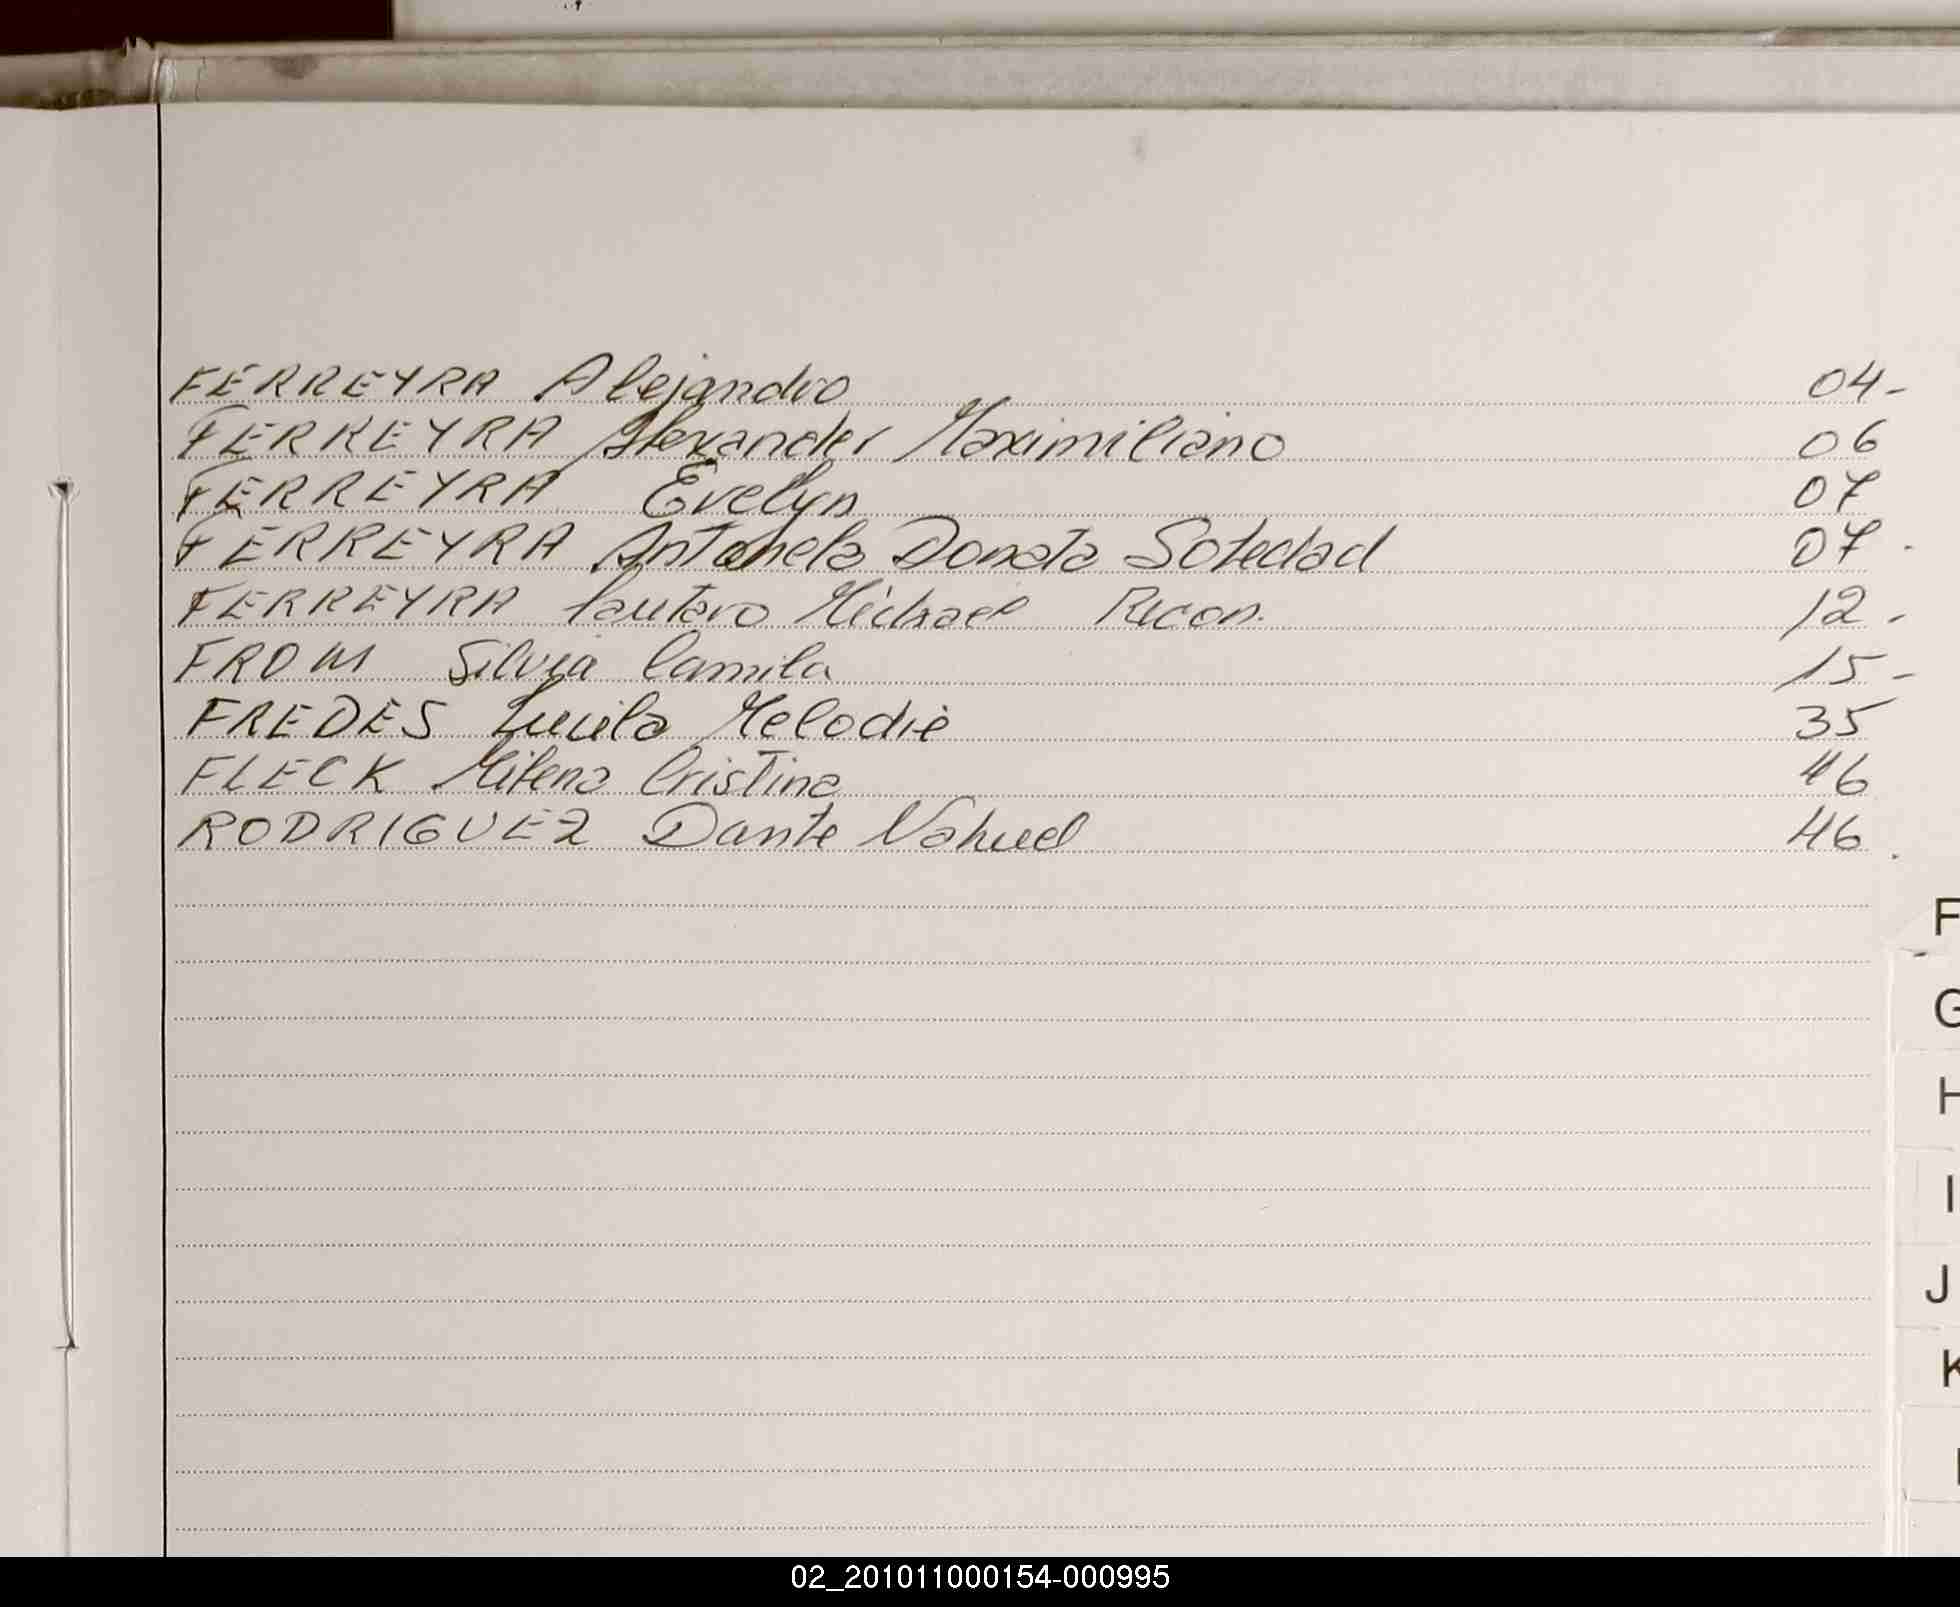 FERREYRA Alejandro 04-
FERREYRA Alexander Maximiliano 06
FERREYRA Evelyn 07
FERREYRA Antonela Donata Soledad 07 -
FERREYRA Lautaro Michael Recon. 12 -
FROM Silvia Camila 15 -
FREDES Lucila Melodie 35
FLECK Milena Cristina 46
RODRIGUEZ Dante Nahuel 46.
F
G
H
I
J
K
02_201011000154-000995